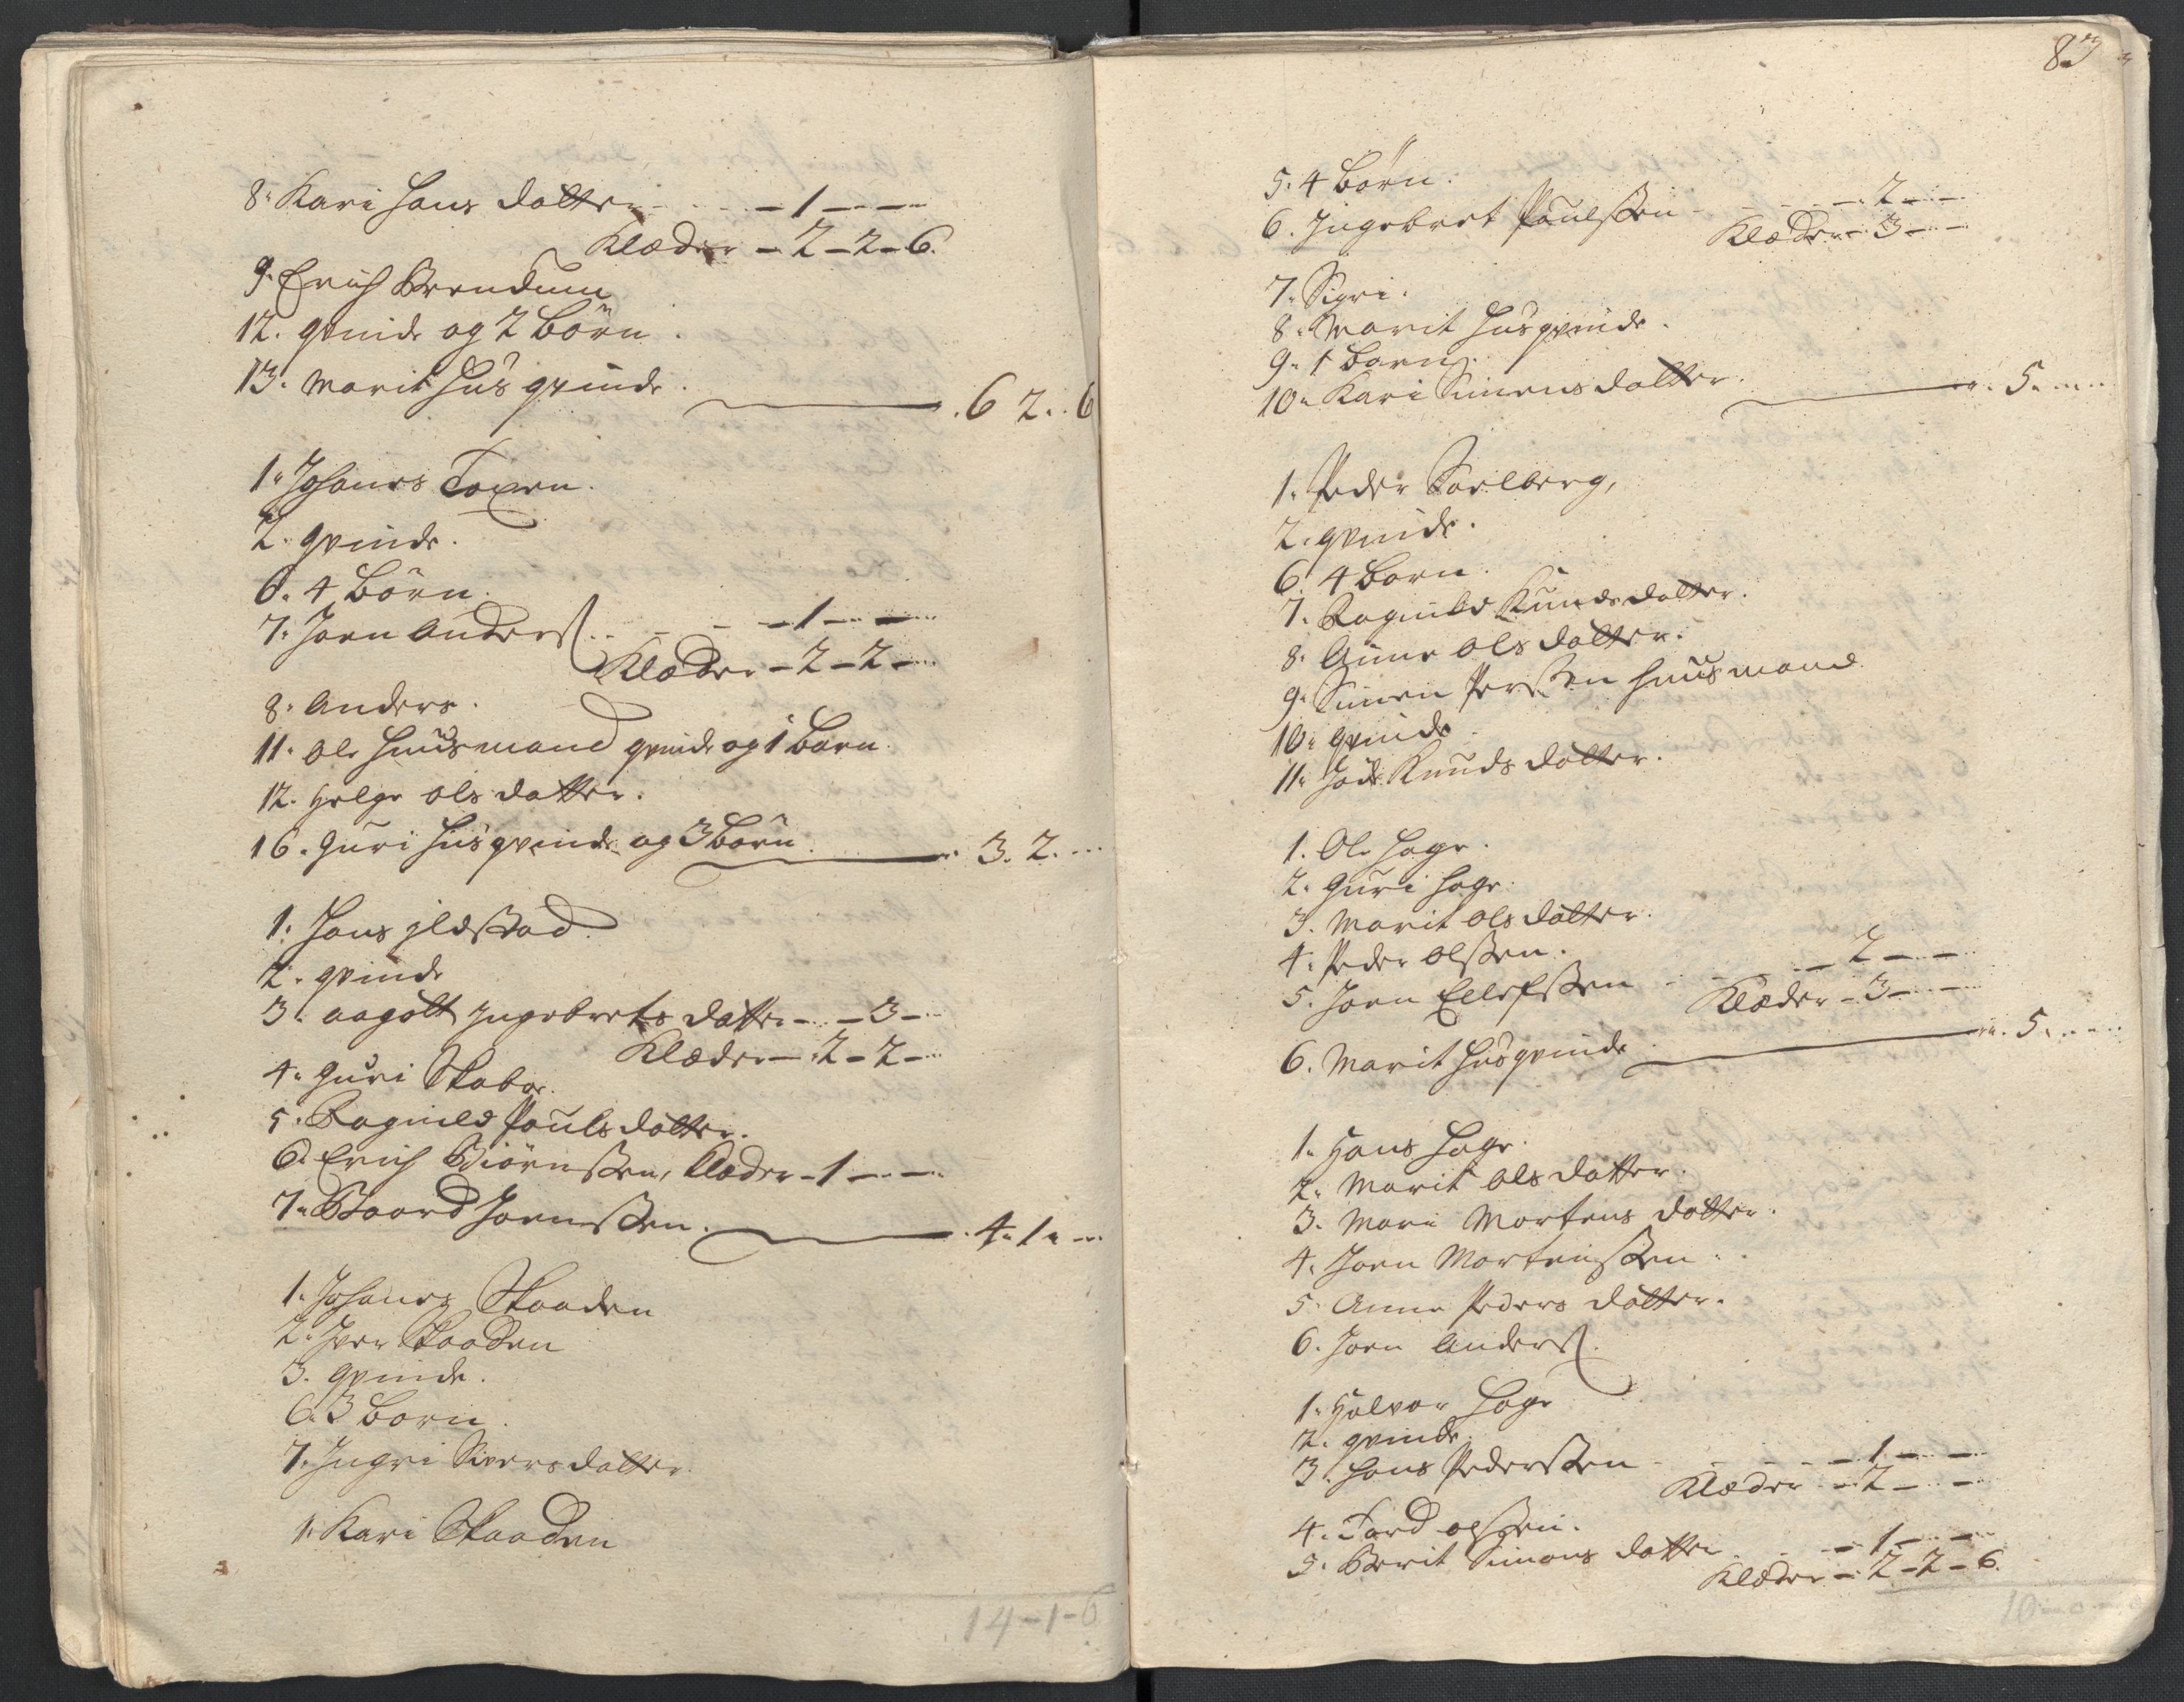 8. Kari Hans datter - - - 1 - -
Klæder - 2 - 2 - 6.
9. Erich Brendum
12. qvinde og 2 Börn.
13. Marit Huus qvinde. . 6 2. . 6
1. Johanes Toxen.
2. qvinde.
6. 4 Börn.
7. Joen Anderss. - - 1 - -
Klæder - 2 - 2 -
8. Anders.
11. Ole Huusmand qvinde og 1 Barn.
12. Helge Ols datter.
16. Guri Huusqvinde og 3 Börn. 3. 2. -
1. Hans
2. qvinde
3. Aagott Ingebrets datter - - 3 -
Klæder - 2 - 2 -
4. Guri Skabo.
5. Ragnild Pouls datter.
6. Erich Biörnssen, Klæder - 1 - -
7. Baard Joenssen. . 4. 1. -
1. Johanes Skaaden
2. Iver Skaaden
3. qvinde.
6. 3 Born.
7. Ingri Sivers datter.
1. Kari Skaaden
14-1-6
83
5. 4 Börn.
6. Ingebret Poulssen - - - 2 - -
Klæder - 3 - -
7. Sigri.
8. Marit Huusqvinde.
9. 1 Barn.
10. Kari Simens datter. 5. -
1. Peder Solberg,
2. qvinde.
6. 4 Born.
7. Ragnild Knuds datter.
8. Anne Ols datter.
9. Simen Perssen Huusmand
10. qvinde.
11. Knuds datter.
1. Ole Hage.
2. Guri Hage.
3. Marit Ols datter.
4. Peder Olssen. - 2 - -
5. Joen Ellefssen - - Klæder - 3 - -
6. Marit Huusqvinde 5. -
1. Hans Hage.
2. Marit Ols datter.
3. Mari Mortens datter.
4. Joen Mortenssen.
5. Anne Peders datter.
6. Joen Anderss.
1. Halvor Hage
2. qvinde.
3. Hans Pederssen - - - 1 - -
Klæder - 2 - -
4. Tord Olssen.
5. Berit Simons datter - 1 - -
Klæder - 2 - 2 - 6.
10 - 0 -